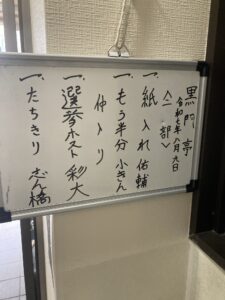 黒門亭
令和七年八月九日
〈二部〉
一、紙入れ 佑輔
一、もう半分 小きん
仲入り
一、選挙ホスト 彩大
一、たちきり 志ん橋